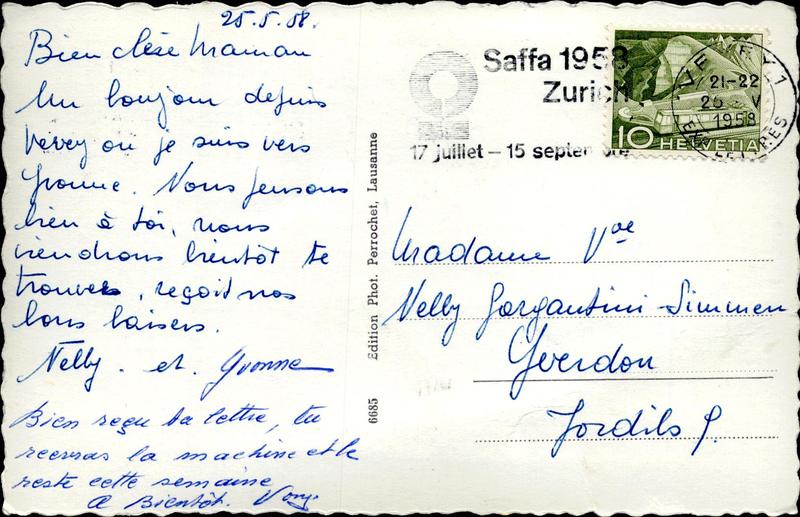 25.5.58.
Bien chère Maman
Un bonjour depuis
Vevey ou je suis vers
Yvonne. Nous pensons
bien à toi, nous
viendrons bientôt te
trouver, reçoit nos
bons baisers.
Nelly et Yvonne
Bien reçu ta lettre, tu
recevras la machine et le
reste cette semaine
A Bientôt.
6685 Edition Phot. Perrochet, Lausanne
Saffa 1958
Zurich
17 juillet – 15 septembre
VEVEY 1
21-22
25 V
1958
10 HELVETIA
Madame Vve
Nelly Gargantini-Simmen
Yverdon
Jordils 9.